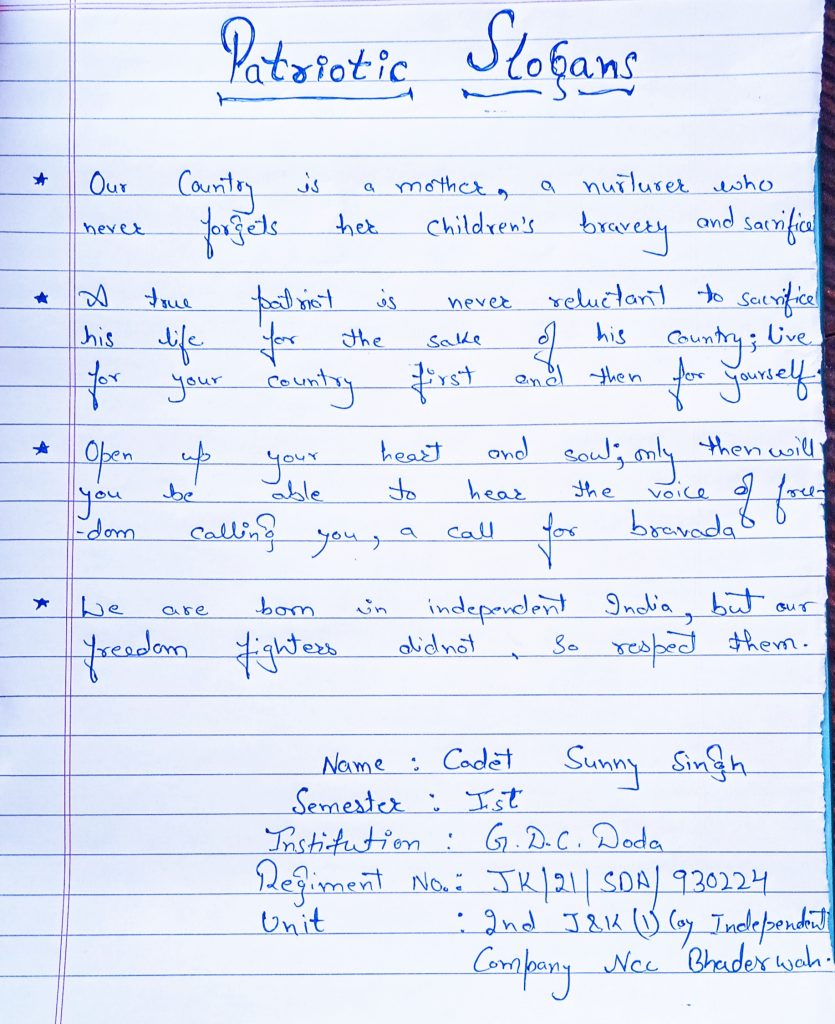 Patriotic Slogans
★ Our Country is a mother, a nurturer who
never forgets her children's bravery and sacrifice
★ A true patriot is never reluctant to sacrifice
his life for the sake of his country; live
for your country first and then for yourself.
★ Open up your heart and soul; only then will
you be able to hear the voice of free-
-dom calling you, a call for bravada
★ We are born in independent India, but our
freedom fighters didnot, so respect them.
Name : Cadet Sunny Singh
Semester : Ist
Institution : G.D.C. Doda
Regiment No.: JK/21/SDA/930224
Unit : 2nd J&K (I) Coy Independent
Company Ncc Bhaderwah.